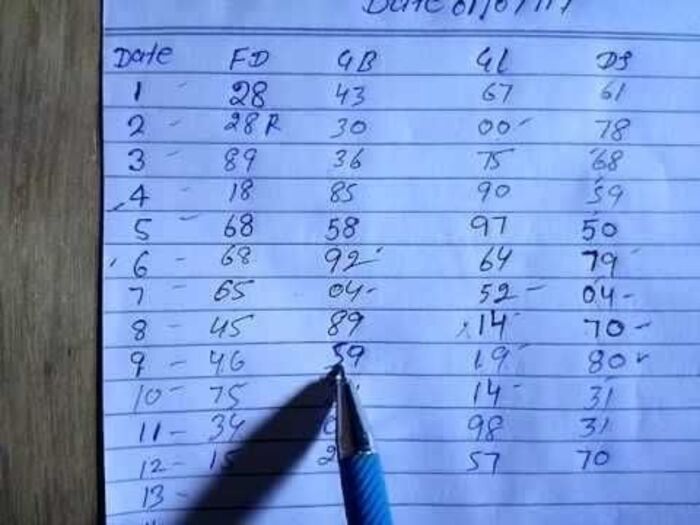 Date
Date FD GB GL DS
1 - 28 43 67 61
2 - 28 R 30 00 - 78
3 - 89 36 75 68
4 - 18 85 90 59
5 - 68 58 97 50
6 - 68 92 64 79
7 - 65 04 - 52 - 04 -
8 - 45 89 14 70 -
9 - 46 59 19 80
10 - 75 14 - 31
11 - 34 98 31
12 - 15 57 70
13 -